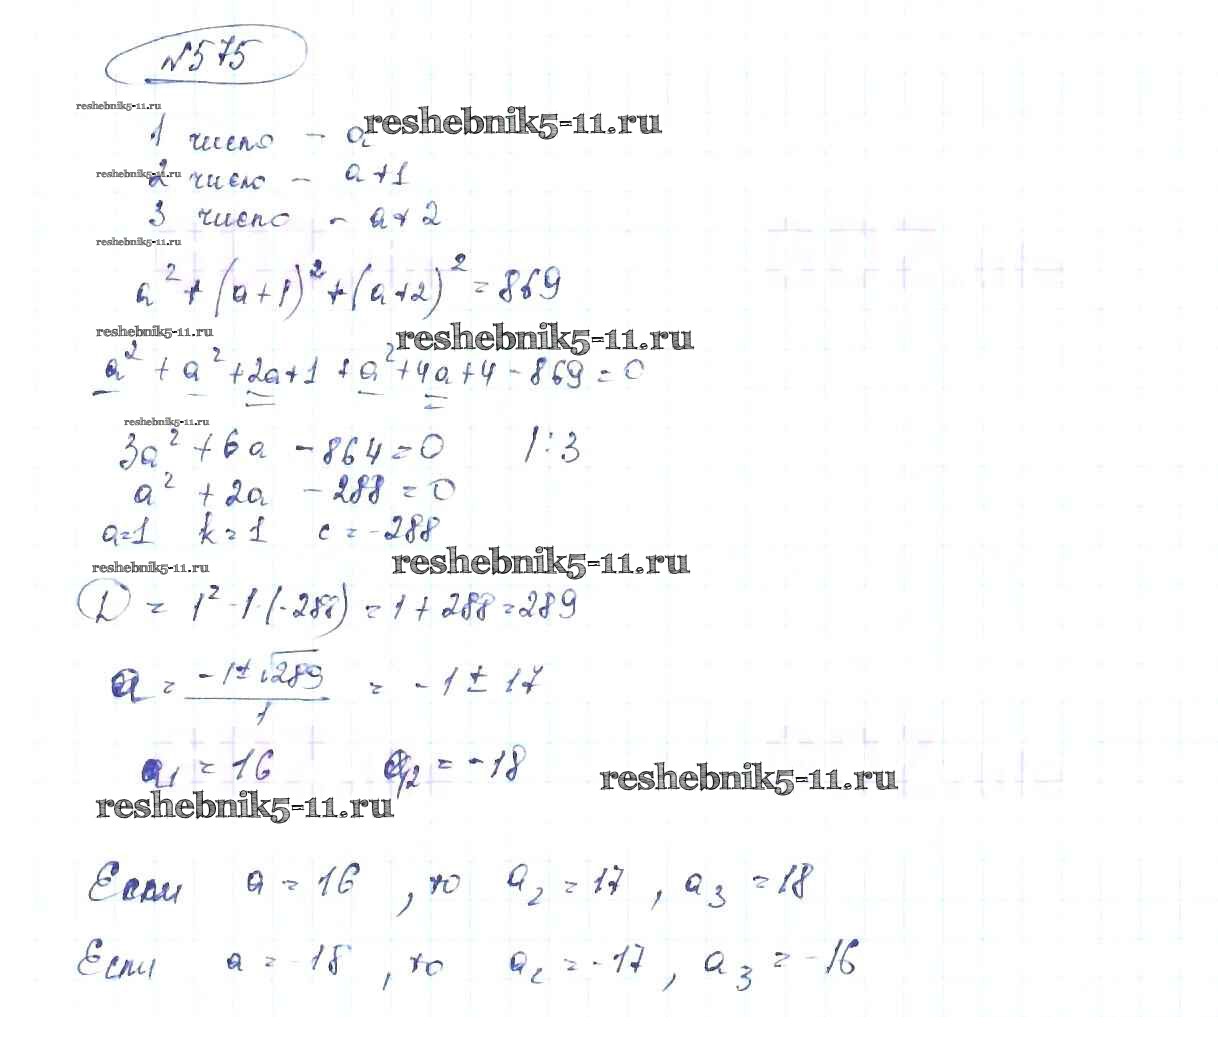 №575
reshebnik5-11.ru
1 число – a
reshebnik5-11.ru
2 число – a+1
reshebnik5-11.ru
3 число – a+2
reshebnik5-11.ru
a² + (a+1)² + (a+2)² = 869
reshebnik5-11.ru
reshebnik5-11.ru
a² + a² + 2a + 1 + a² + 4a + 4 - 869 = 0
reshebnik5-11.ru
3a² + 6a - 864 = 0 /:3
a² + 2a - 288 = 0
a=1 k=1 c=-288
reshebnik5-11.ru
reshebnik5-11.ru
D = 1² - 1·(-288) = 1 + 288 = 289
a = (-1±√289)/1 = -1 ± 17
a₁ = 16 a₂ = -18
reshebnik5-11.ru
reshebnik5-11.ru
Если a = 16, то a₂ = 17, a₃ = 18
Если a = -18, то a₂ = -17, a₃ = -16